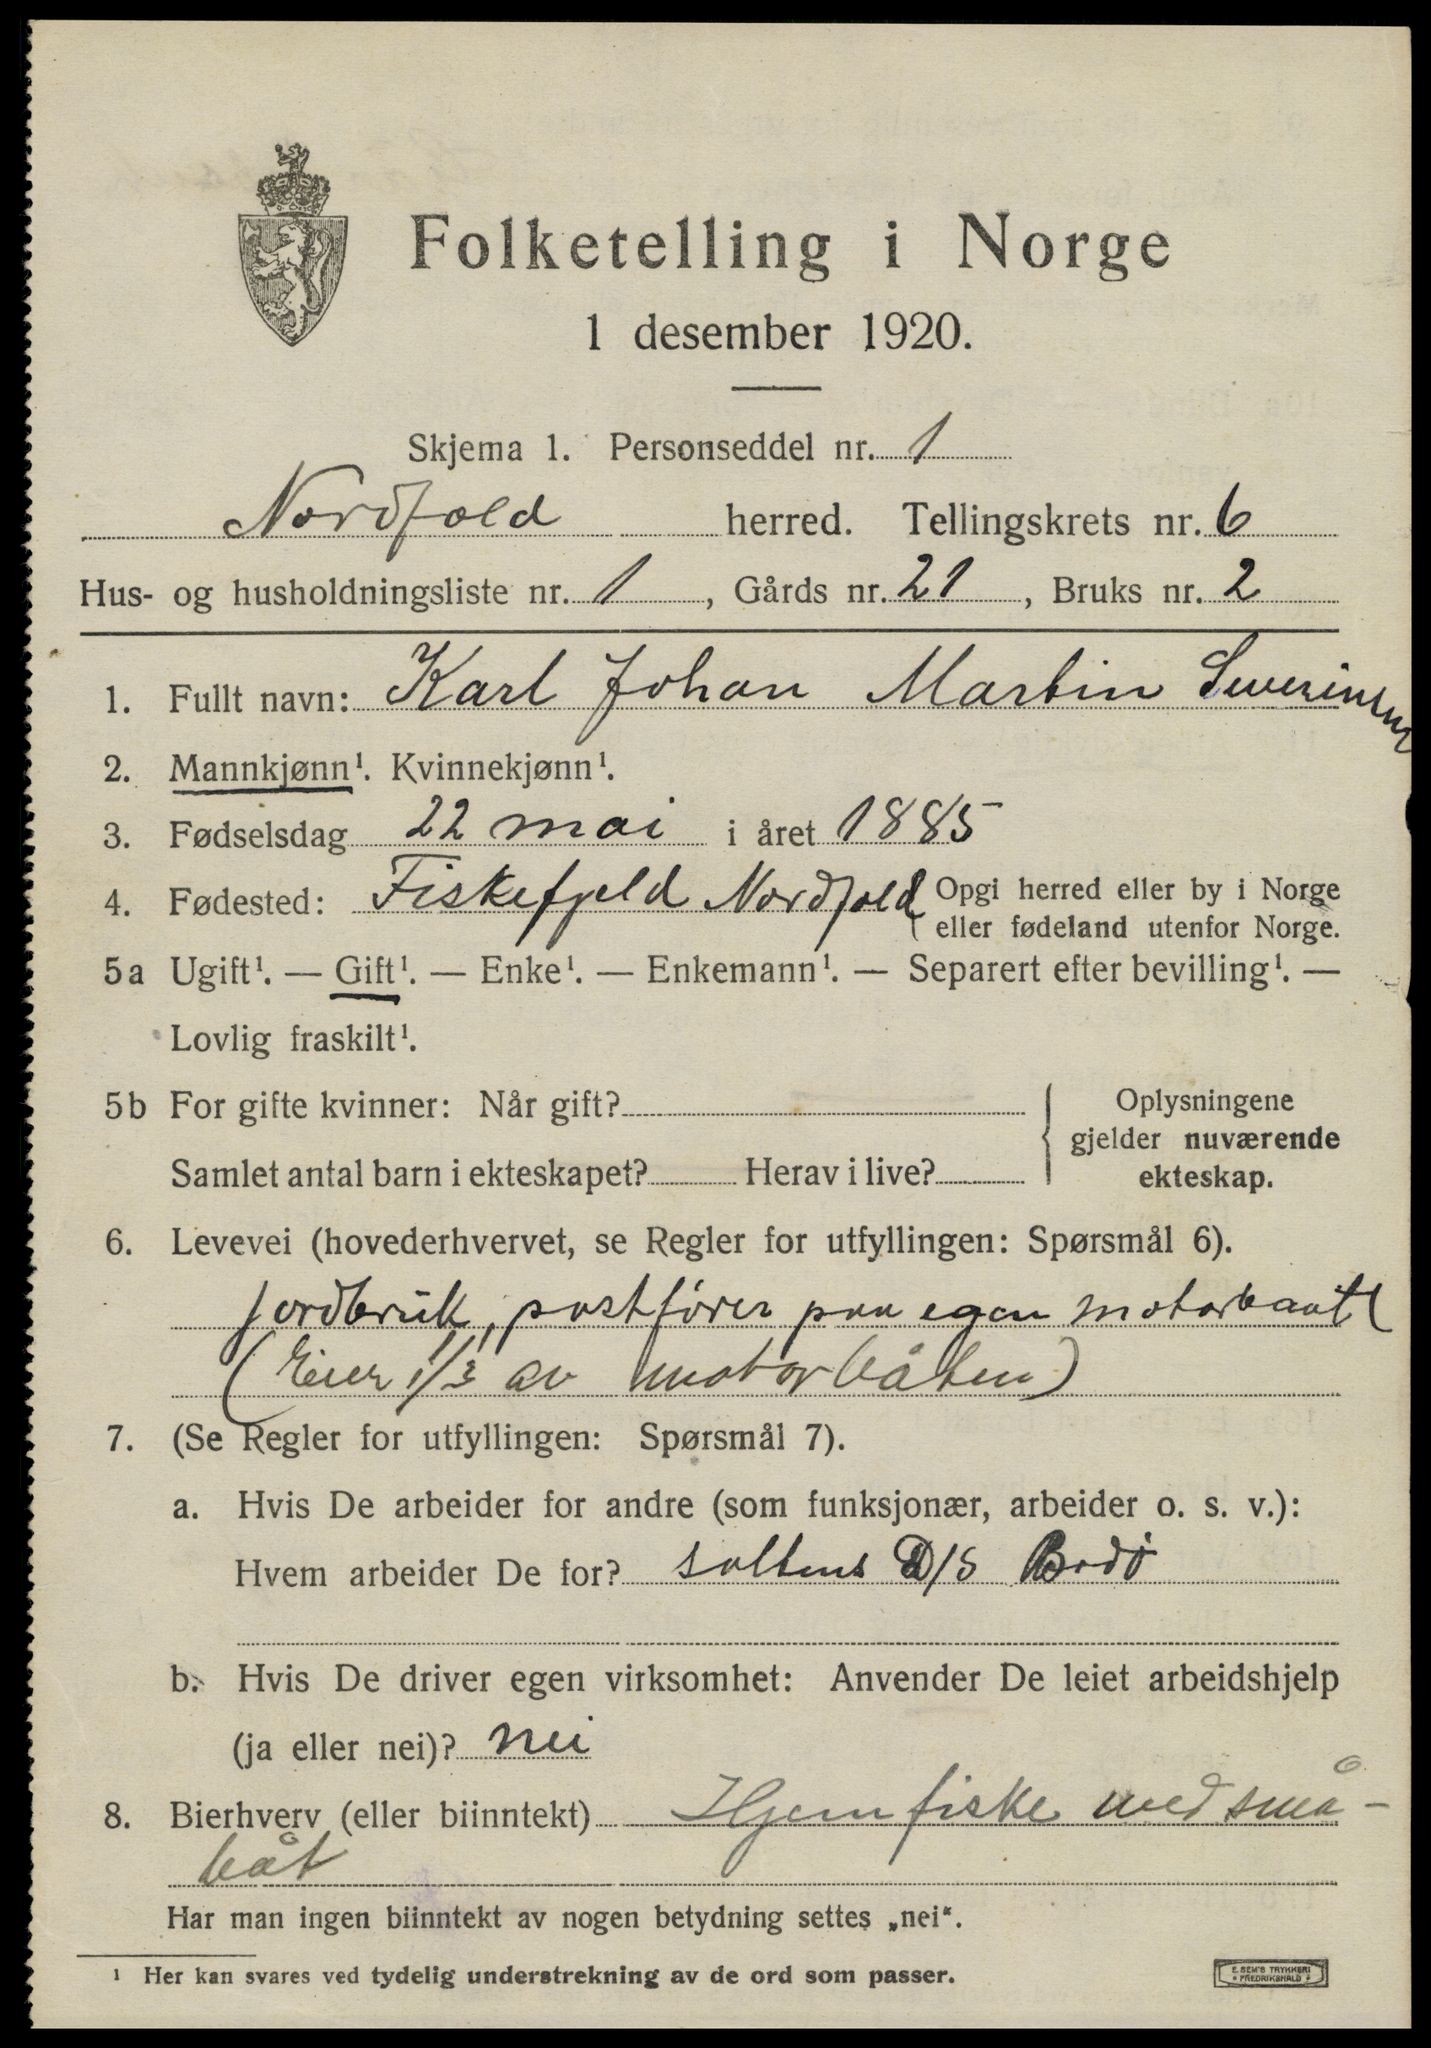 Folketelling i Norge
1 desember 1920.
Skjema 1. Personseddel nr. 1
Nordfold herred. Tellingskrets nr. 6
Hus- og husholdningsliste nr. 1, Gårds nr. 21, Bruks nr. 2
1. Fullt navn: Karl Johan Martin Severinsen
2. Mannkjønn¹. Kvinnekjønn¹.
3. Fødselsdag 22 mai i året 1885
4. Fødested: Fiskefjeld Nordfold { Opgi herred eller by i Norge
eller fødeland utenfor Norge.
5a Ugift¹. — Gift¹. — Enke¹. — Enkemann¹. — Separert efter bevilling¹. —
Lovlig fraskilt¹.
5b For gifte kvinner: Når gift?
Samlet antal barn i ekteskapet? Herav i live?
Oplysningene
gjelder nuværende
ekteskap.
6. Levevei (hovederhvervet, se Regler for utfyllingen: Spørsmål 6).
jordbruk, postfører paa egen motorbaat
(Eier 1/3 av motorbåten)
7. (Se Regler for utfyllingen: Spørsmål 7).
a. Hvis De arbeider for andre (som funksjonær, arbeider o. s. v.):
Hvem arbeider De for? saltens D/S Bodø
b. Hvis De driver egen virksomhet: Anvender De leiet arbeidshjelp
(ja eller nei)? nei
8. Bierhverv (eller biinntekt) Hjemfiske med små-
båt
Har man ingen biinntekt av nogen betydning settes „nei“.
¹ Her kan svares ved tydelig understrekning av de ord som passer.
E. SEM'S TRYKKERI
FREDRIKSHALD